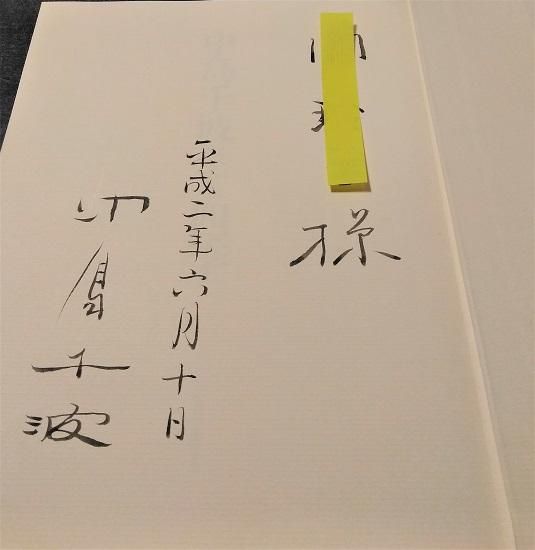 様
平成二年六月十日
中島千波